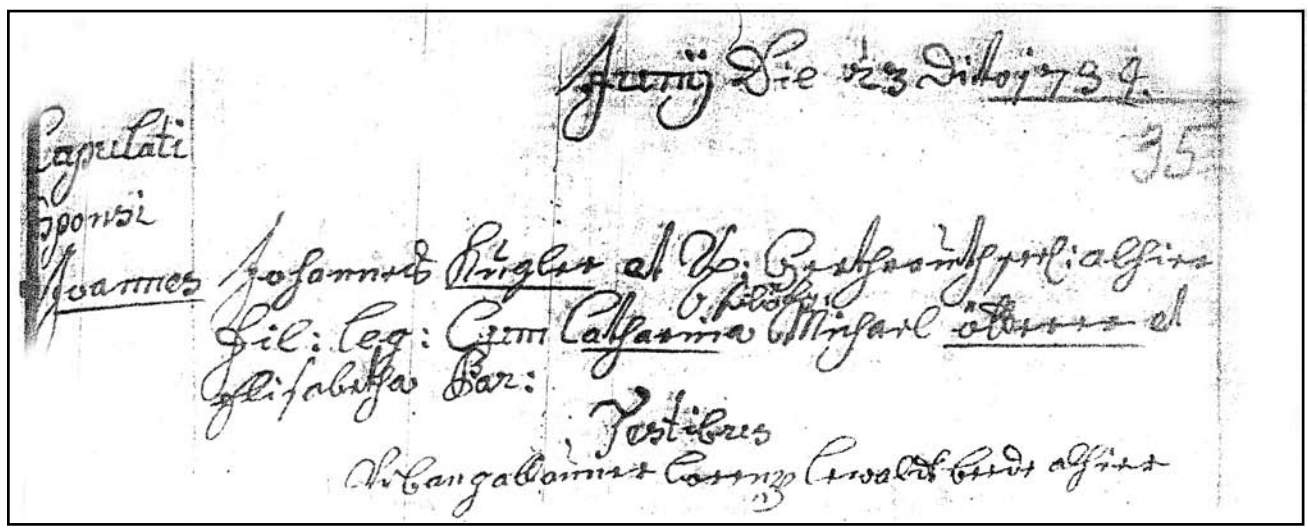 Junÿ Die 23 Dito 1734.
35
Capulati
Sponsi
Joannes Johannes Kügler et Ux: Gertrauth alhier
Fil: leg: Cum Catharina Michael et
Elisabetha Par:
Testibus
Urban Lorenz beede alhier